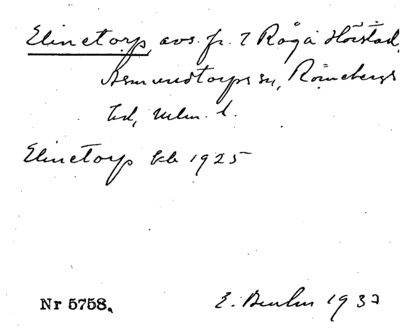 Elinetorp, avs. fr. 2 Råga Hörstad,
Asmundtorps sn, Rönnebergs
hd, Mlm. l.
Elinetorp kb 1925
Nr 5758.
E. 1932